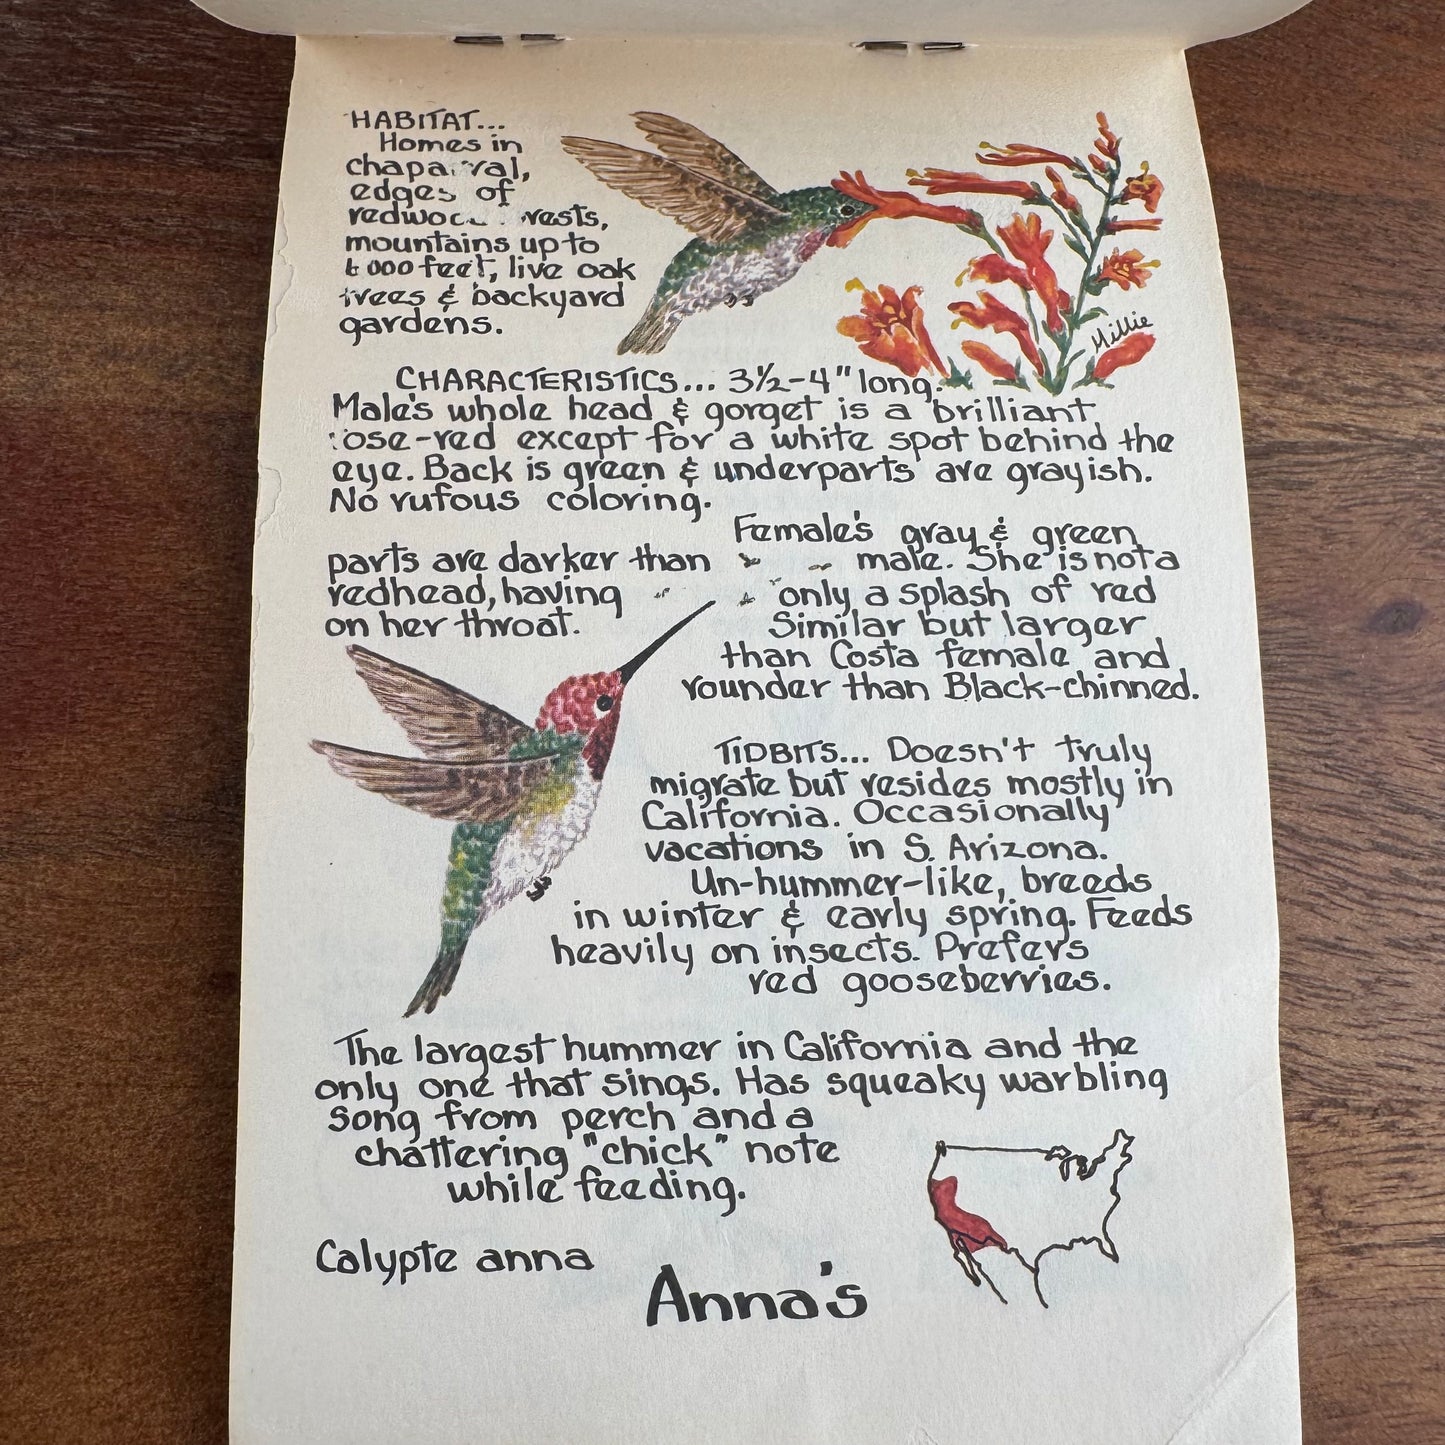 HABITAT...
Homes in
chaparral,
edges of
redwood forests,
mountains up to
feet, live oak
trees & backyard
gardens.
Millie
CHARACTERISTICS... 3½-4" long.
Male's whole head & gorget is a brilliant
rose-red except for a white spot behind the
eye. Back is green & underparts are grayish.
No rufous coloring.
Female's gray & green
parts are darker than male. She is not a
redhead, having only a splash of red
on her throat. Similar but larger
than Costa female and
rounder than Black-chinned.
TIDBITS... Doesn't truly
migrate but resides mostly in
California. Occasionally
vacations in S. Arizona.
Un-hummer-like, breeds
in winter & early spring. Feeds
heavily on insects. Prefers
red gooseberries.
The largest hummer in California and the
only one that sings. Has squeaky warbling
song from perch and a
chattering "chick" note
while feeding.
Calypte anna
Anna's